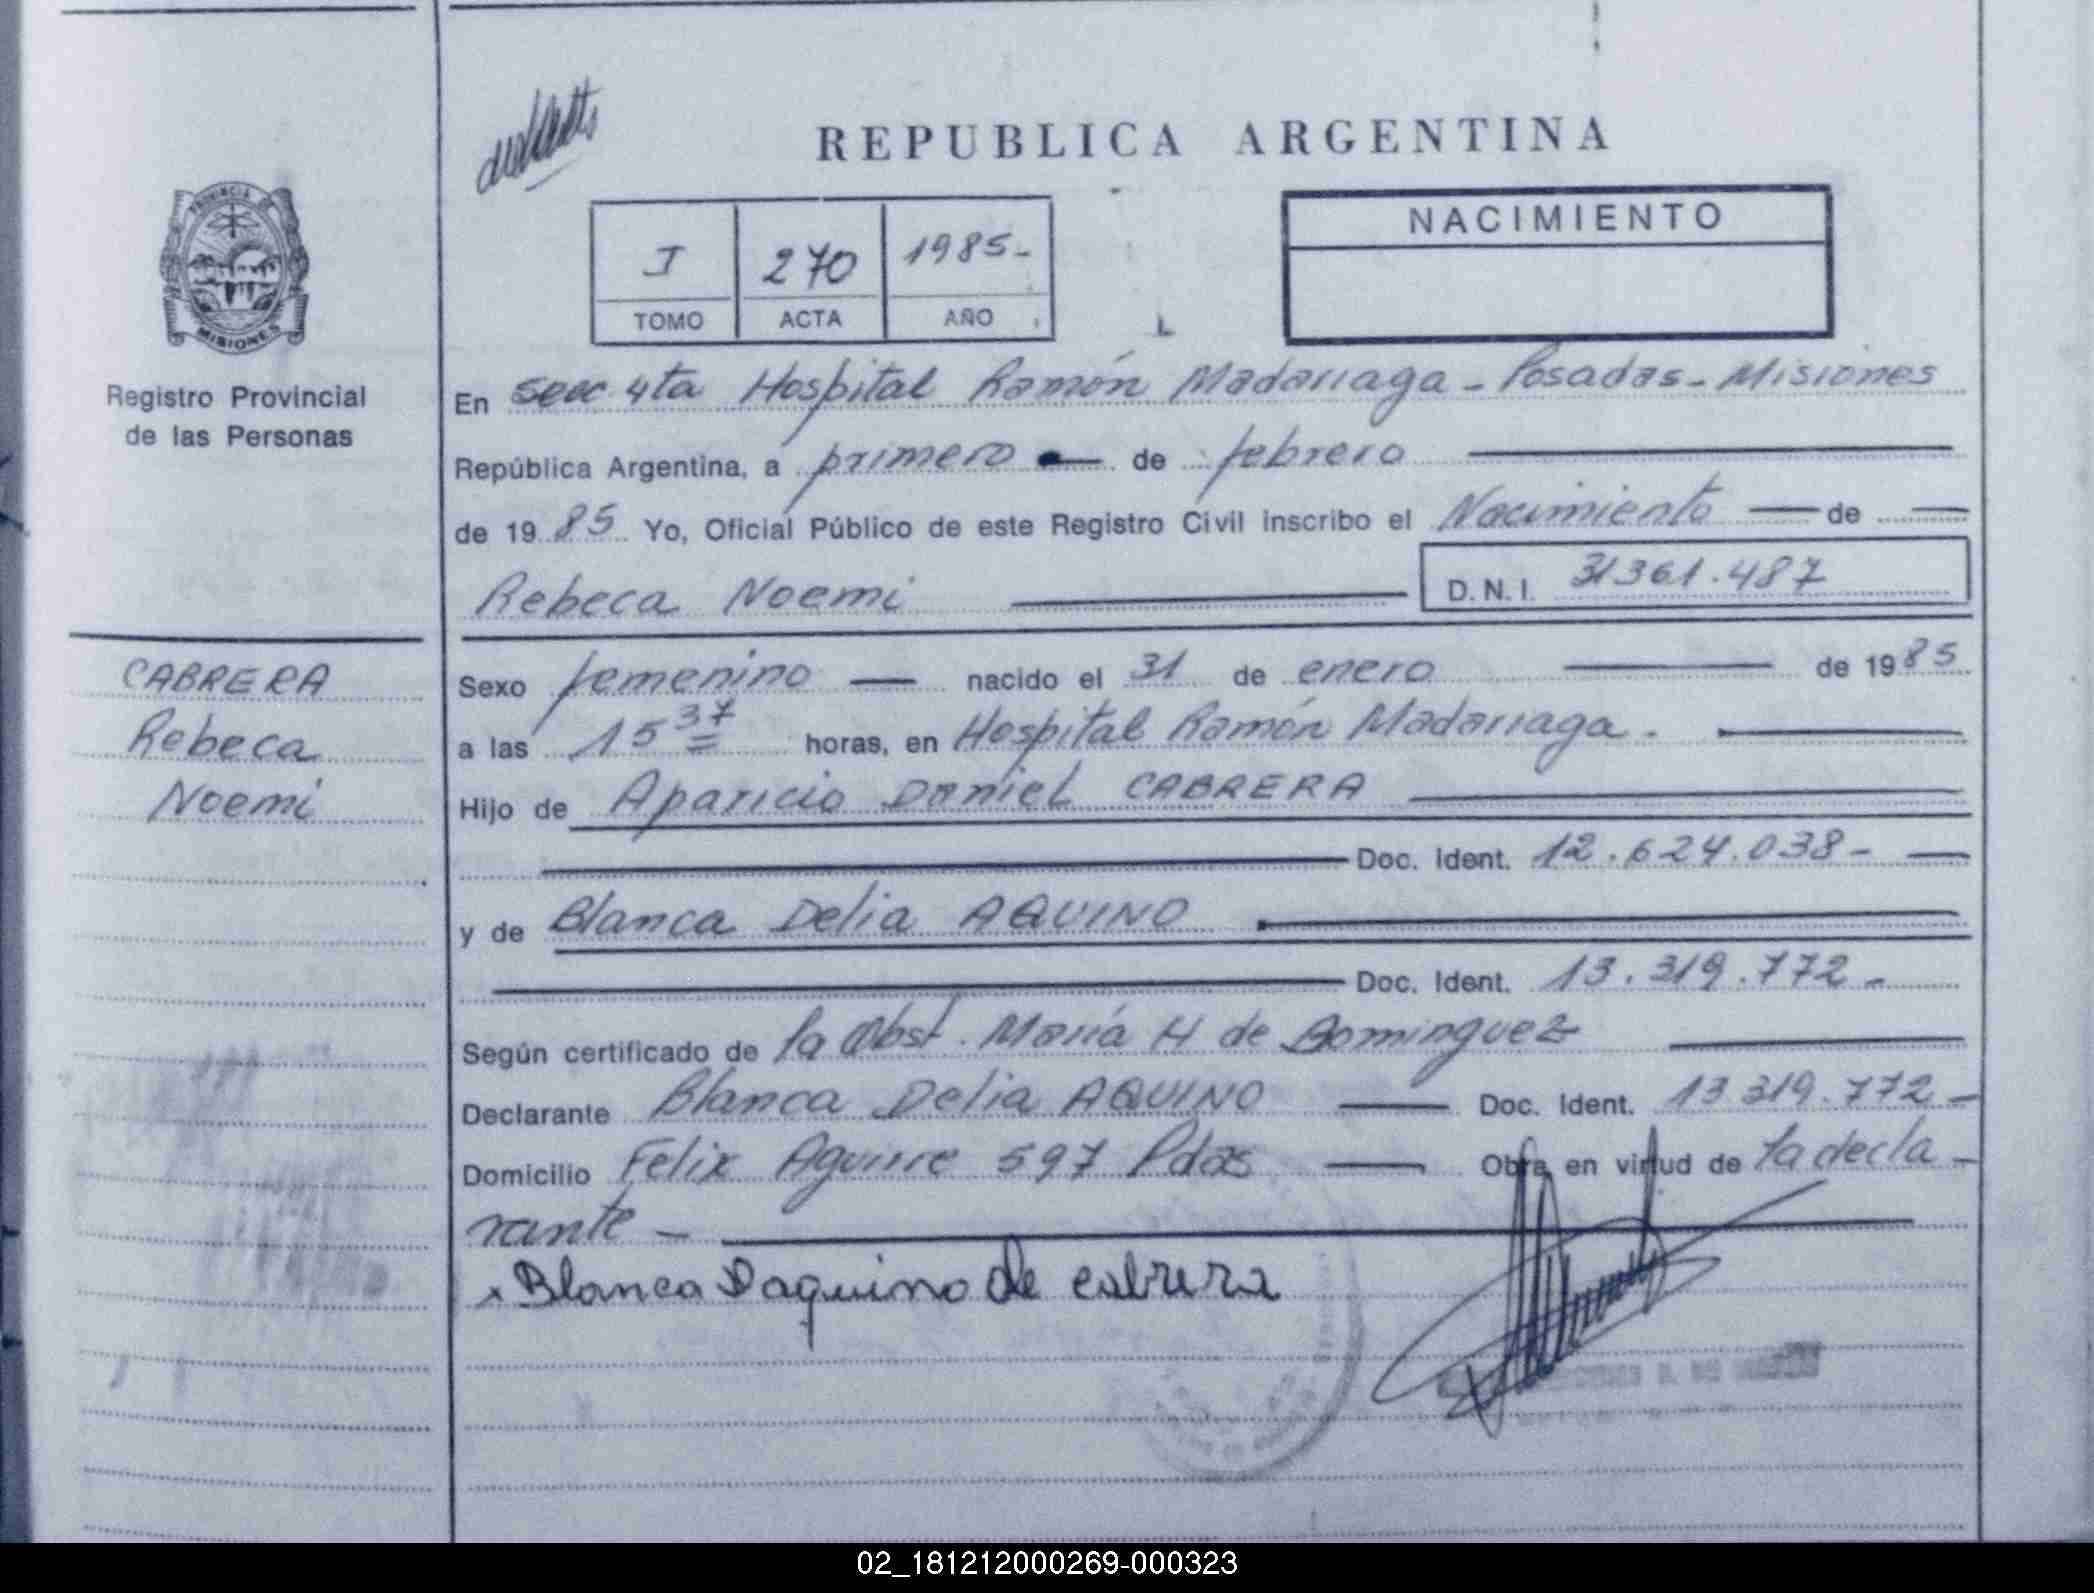 REPUBLICA ARGENTINA
PROVINCIA
MISIONES
Registro Provincial
de las Personas
I 270 1985-
TOMO ACTA AÑO
NACIMIENTO
En secc 4ta Hospital Ramón Madariaga - Posadas - Misiones
República Argentina, a primero de febrero
de 1985 Yo, Oficial Público de este Registro Civil inscribo el Nacimiento de
Rebeca Noemi D.N.I. 31361.487
CABRERA
Rebeca
Noemi
Sexo femenino nacido el 31 de enero de 1985
a las 15 37 horas, en Hospital Ramón Madariaga.
Hijo de Aparicio Daniel CABRERA
Doc. Ident. 12.624.038-
y de Blanca Delia AQUINO
Doc. Ident. 13.319.772-
Según certificado de la Obst. María H de Dominguez
Declarante Blanca Delia AQUINO Doc. Ident. 13 319.772-
Domicilio Felix Aguirre 597 Pdas Obra en virtud de la decla-
rante-
x Blanca D aquino de cabrera
02_181212000269-000323